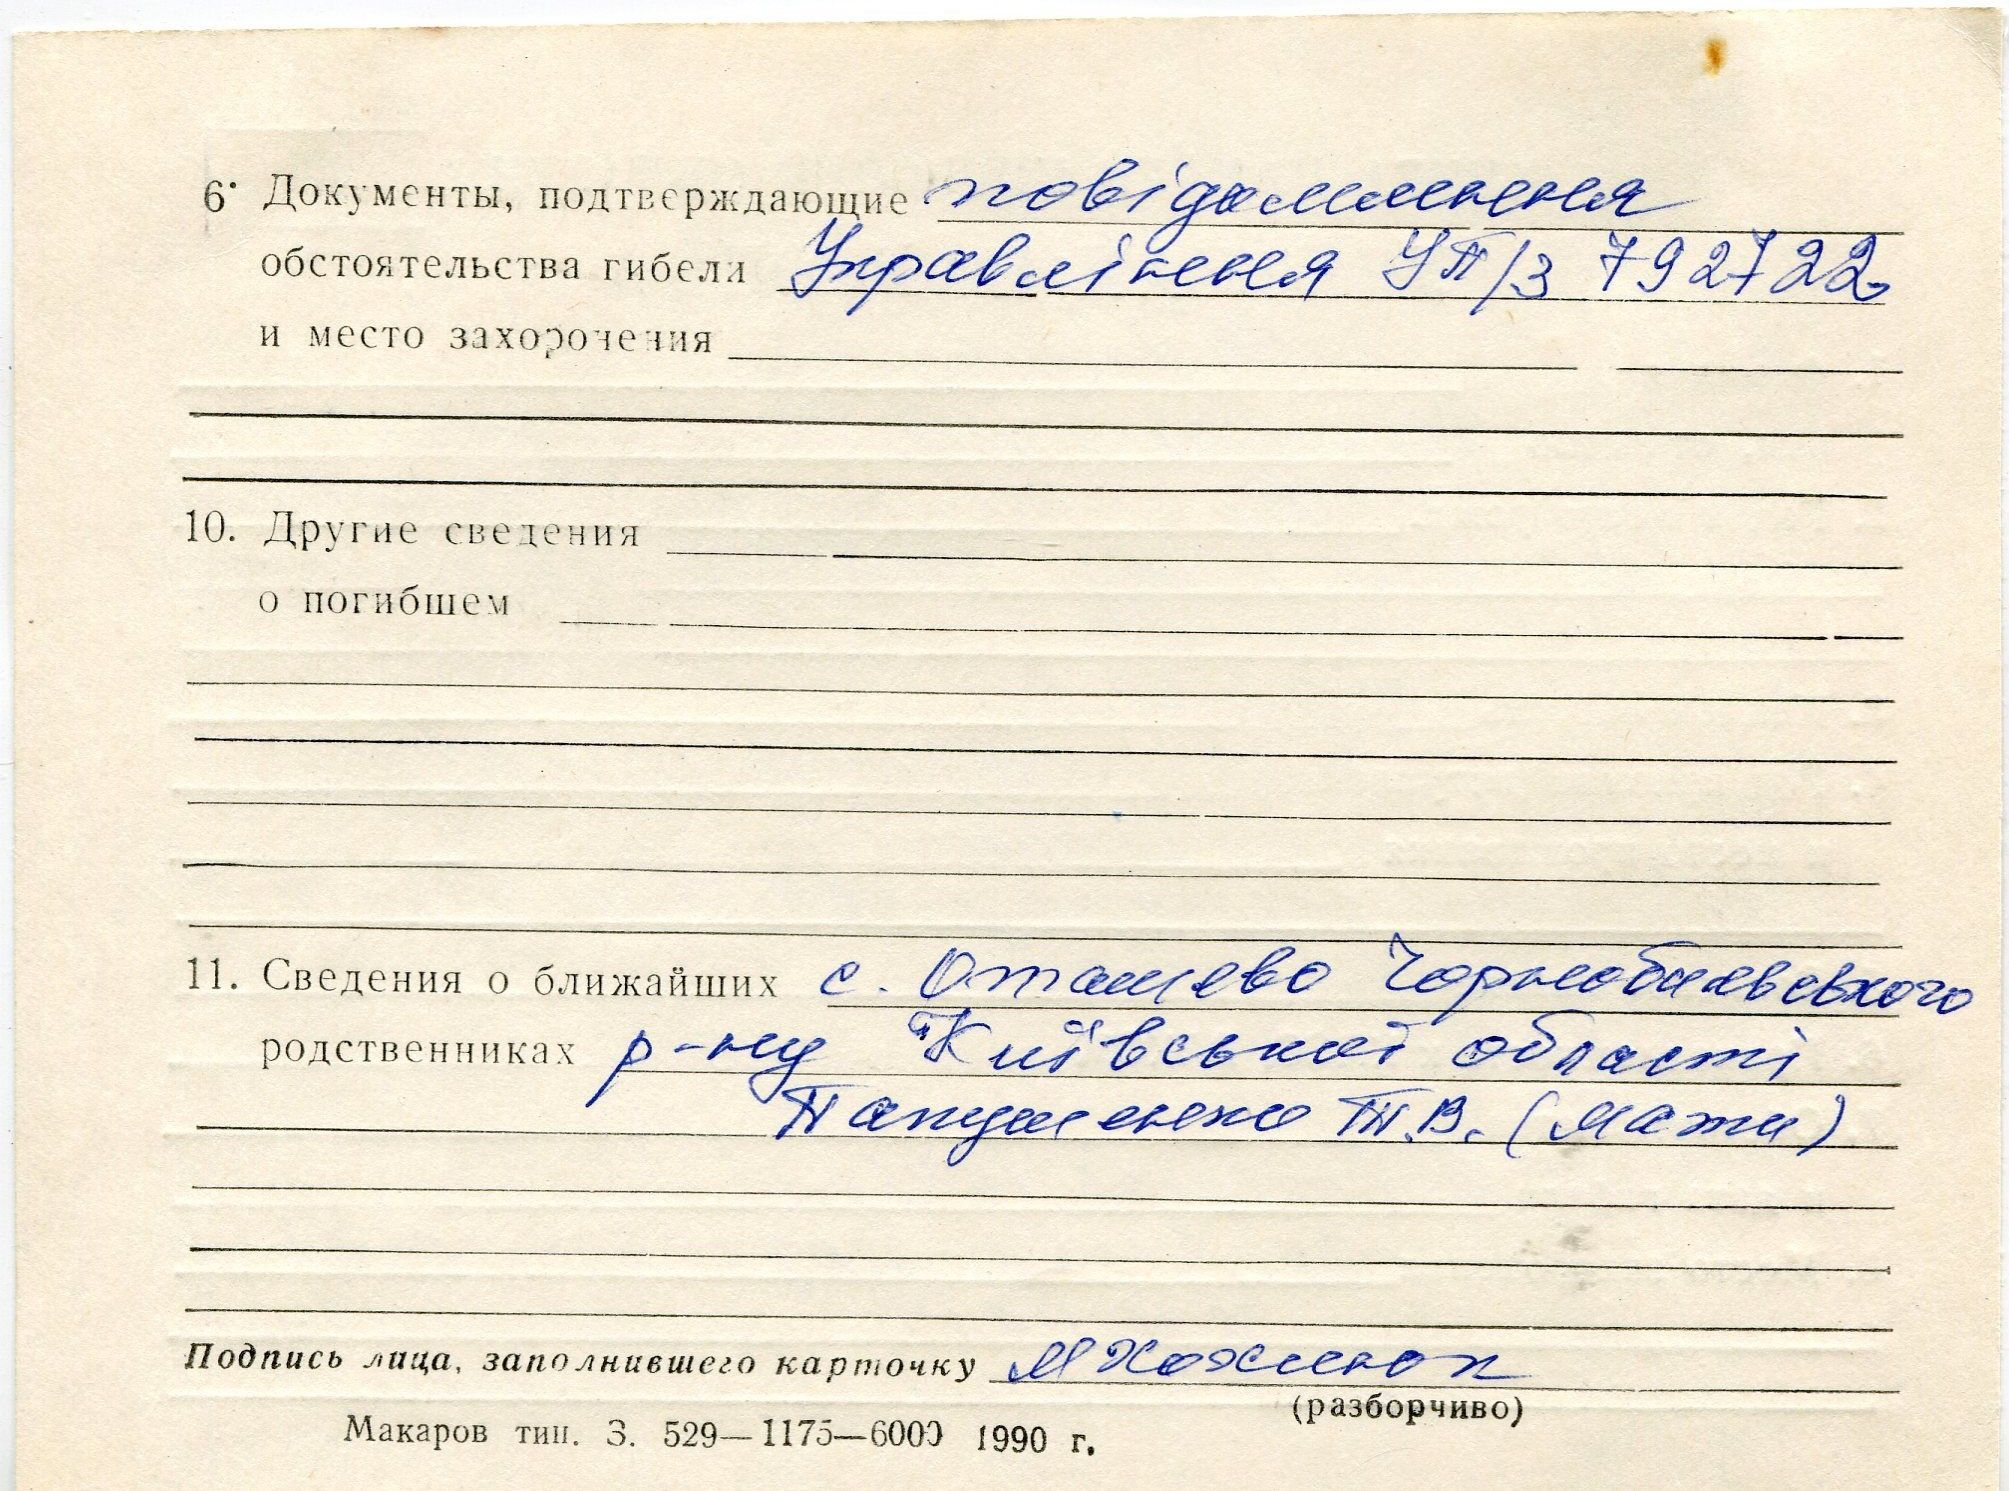 6. Документы, подтверждающие повідомлення
обстоятельства гибели Управління УП/З 792722
и место захоронения
10. Другие сведения
о погибшем
11. Сведения о ближайших с. Оташево Чорнобильвського
родственниках р-ну Київської області
Т.В. (мати)
Подпись лица, заполнившего карточку
(разборчиво)
Макаров тип. З. 529—1175—6000 1990 г.